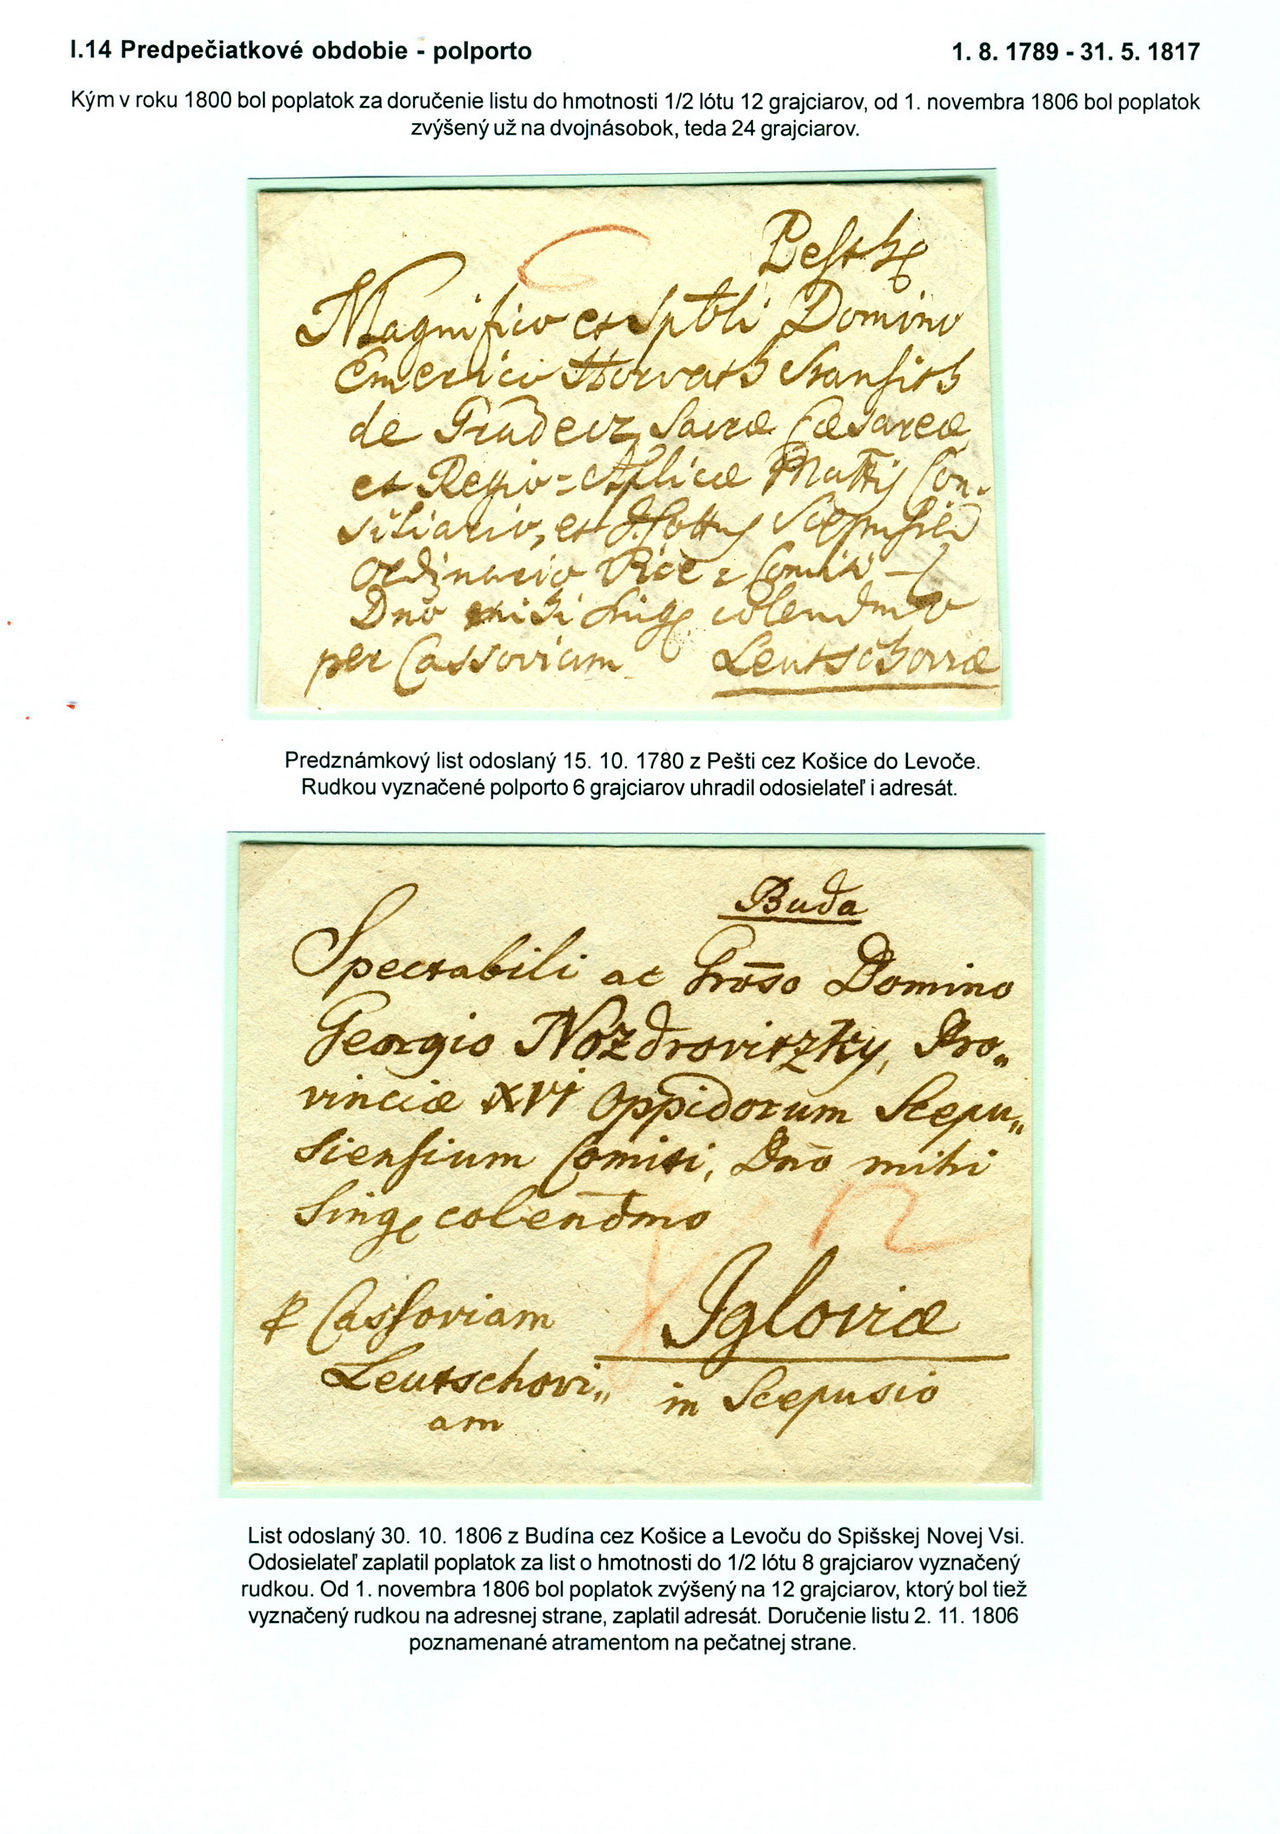 I.14 Predpečiatkové obdobie - polporto
1. 8. 1789 - 31. 5. 1817
Kým v roku 1800 bol poplatok za doručenie listu do hmotnosti 1/2 lótu 12 grajciarov, od 1. novembra 1806 bol poplatok
zvýšený už na dvojnásobok, teda 24 grajciarov.
Magnifico et Sptbli Domino
Emerico Horvath Stansith
de Gradecz Sacrae Caesareae
et Regio = Aplicae Mattis Con-
siliario, et
Ordinario Vice = Comiti
Dno mihi Sing. colendmo
per Cassoviam Leutschoviae
Predznámkový list odoslaný 15. 10. 1780 z Pešti cez Košice do Levoče.
Rudkou vyznačené polporto 6 grajciarov uhradil odosielateľ i adresát.
Buda
Spectabili ac Groso Domino
Georgio Nozdrovitzky, Pro„
vinciae XVI Oppidorum Scepu„
siensium Comiti, Dno mihi
Sing. colendmo
12
8
Cassoviam Igloviae
Leutschovi„ in Scepusio
am
List odoslaný 30. 10. 1806 z Budína cez Košice a Levoču do Spišskej Novej Vsi.
Odosielateľ zaplatil poplatok za list o hmotnosti do 1/2 lótu 8 grajciarov vyznačený
rudkou. Od 1. novembra 1806 bol poplatok zvýšený na 12 grajciarov, ktorý bol tiež
vyznačený rudkou na adresnej strane, zaplatil adresát. Doručenie listu 2. 11. 1806
poznamenané atramentom na pečatnej strane.